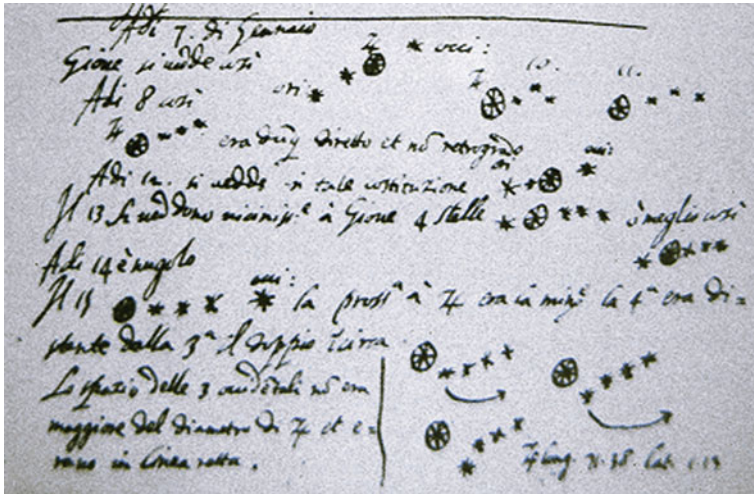 Adì 7. di Gennaio
Gione si vedde così
ori: occi:
Adì 8 così
10. 11.
era dũq diretto et nõ retrogrado
Adì 12. si vedde in tale costituzione ori: occi:
Il 13 si veddono vicinissᵉ à Giove 4 stelle ò meglio così
Adì 14 è nugolo
Il 15 occi: la prossᵃ à ♃ era la minʳᵉ la 4ᵃ era di=
stante dalla 3ᵃ il doppio Tcirca
Lo spazio delle 3 occidẽtali nõ era
maggiore del diametro di ♃ et e=
rano in linea retta.
♃ long. 71.38 lat. 1.13